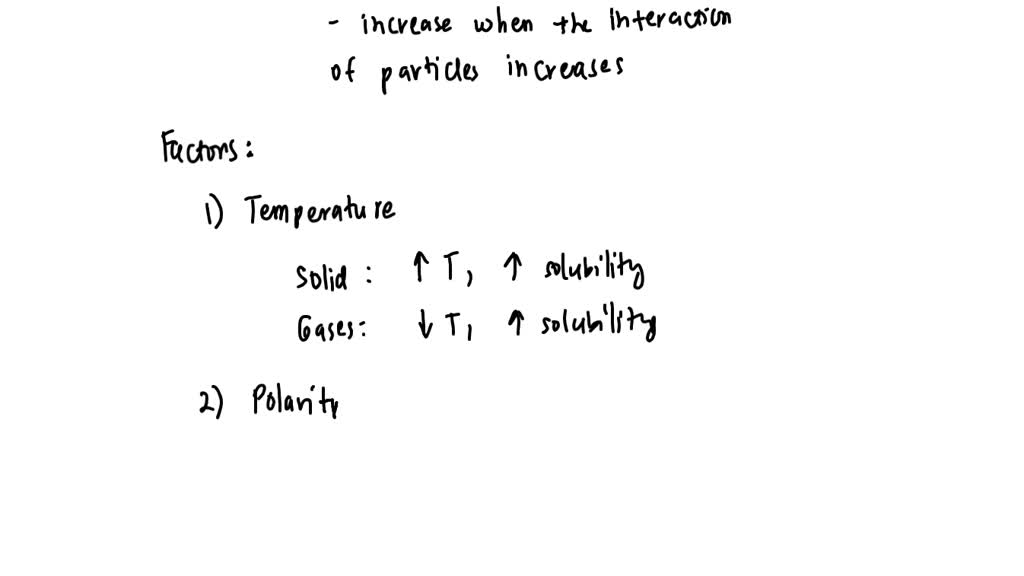 - increase when the interaction
of particles increases
Factors:
1) Temperature
Solid : ↑ T, ↑ solubility
Gases: ↓ T, ↑ solubility
2) Polarity